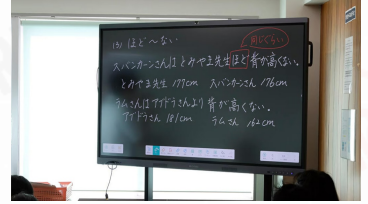 (3) ほど～ない
同じくらい
スバンカーンさんはとみやま先生ほど背が高くない。
とみやま先生 177cm スバンカーンさん 176cm
ラムさんはアブドラさんより背が高くない。
アブドラさん 181cm ラムさん 162cm